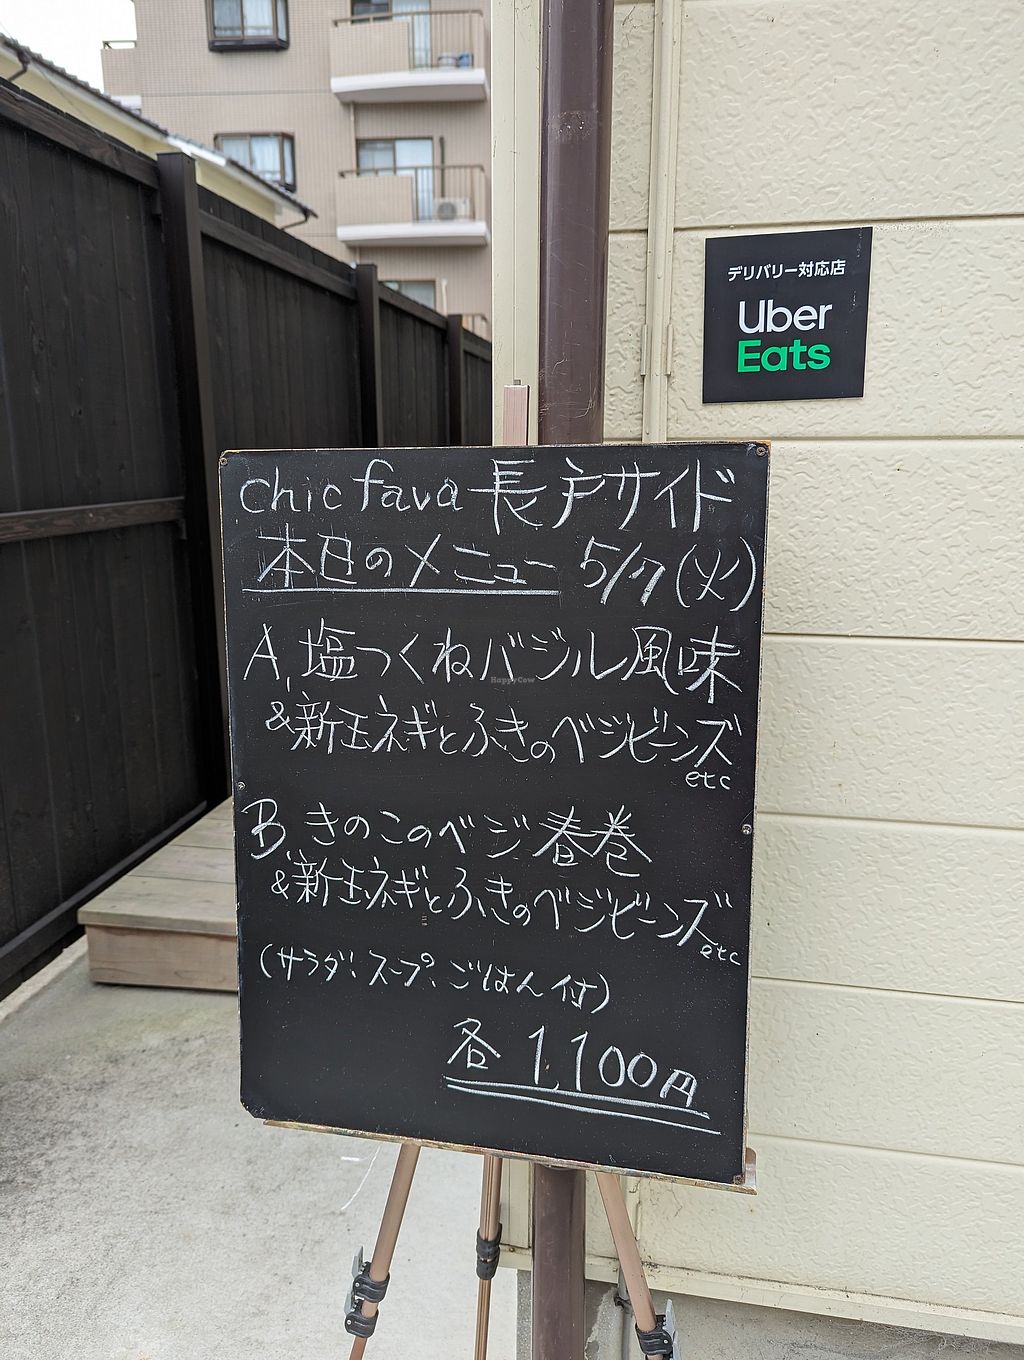 デリバリー対応店
Uber
Eats
chic fava 長戸サイド
本日のメニュー 5/7(火)
A, 塩つくねバジル風味
&新玉ネギとふきのベジビーンズ
etc
B, きのこのベジ春巻
&新玉ネギとふきのベジビーンズ
etc
(サラダ、スープ、ごはん付)
各 1,100円
HappyCow